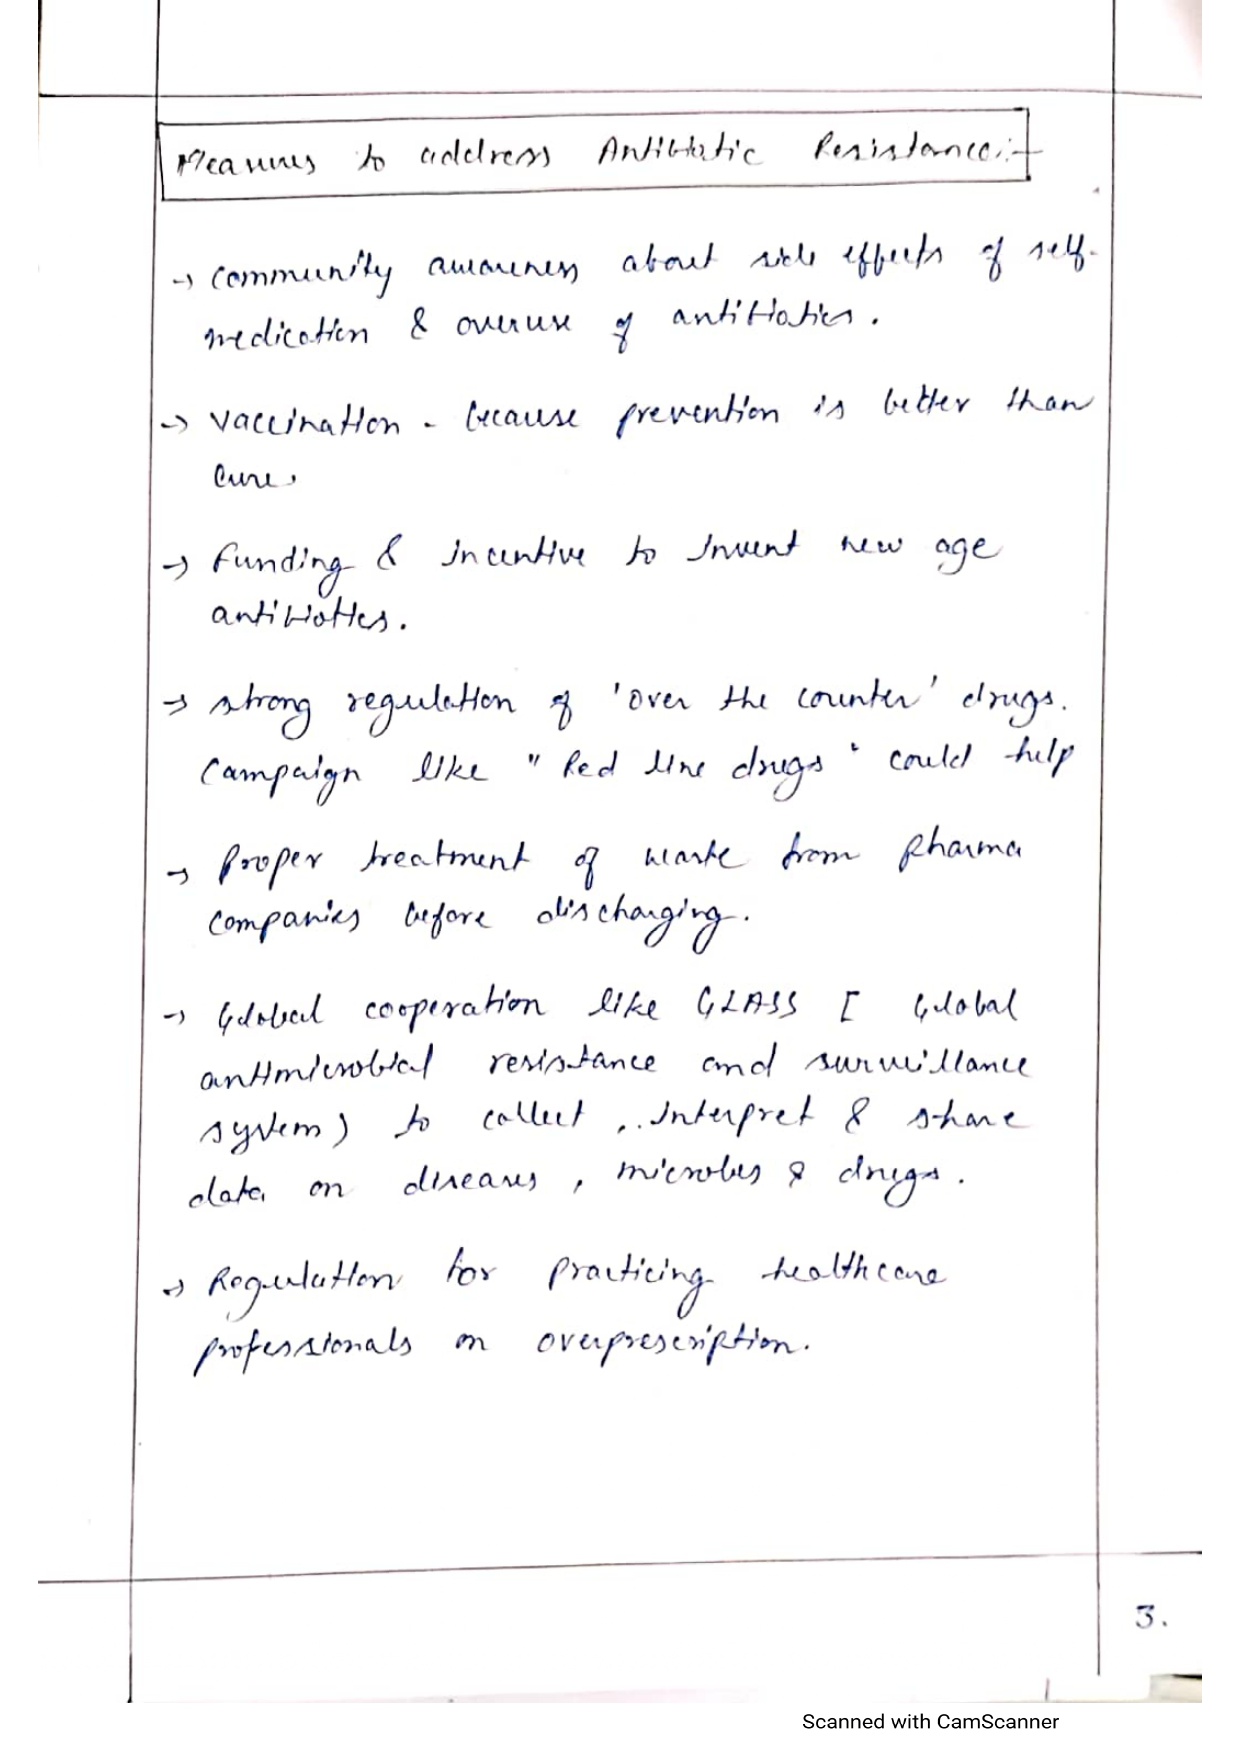 Measures to address Antibiotic Resistance:-
→ Community awareness about side effects of self-
medication & overuse of antibiotics.
→ Vaccination - because prevention is better than
cure.
→ Funding & incentive to invent new age
antibiotics.
→ strong regulation of 'over the counter' drugs.
Campaign like "Red line drugs" could help
→ Proper treatment of waste from pharma
companies before discharging.
→ Global cooperation like GLASS [ Global
antimicrobial resistance and surveillance
system) to collect, interpret & share
data on diseases, microbes & drugs.
→ Regulation for practicing healthcare
professionals on overprescription.
3.
Scanned with CamScanner